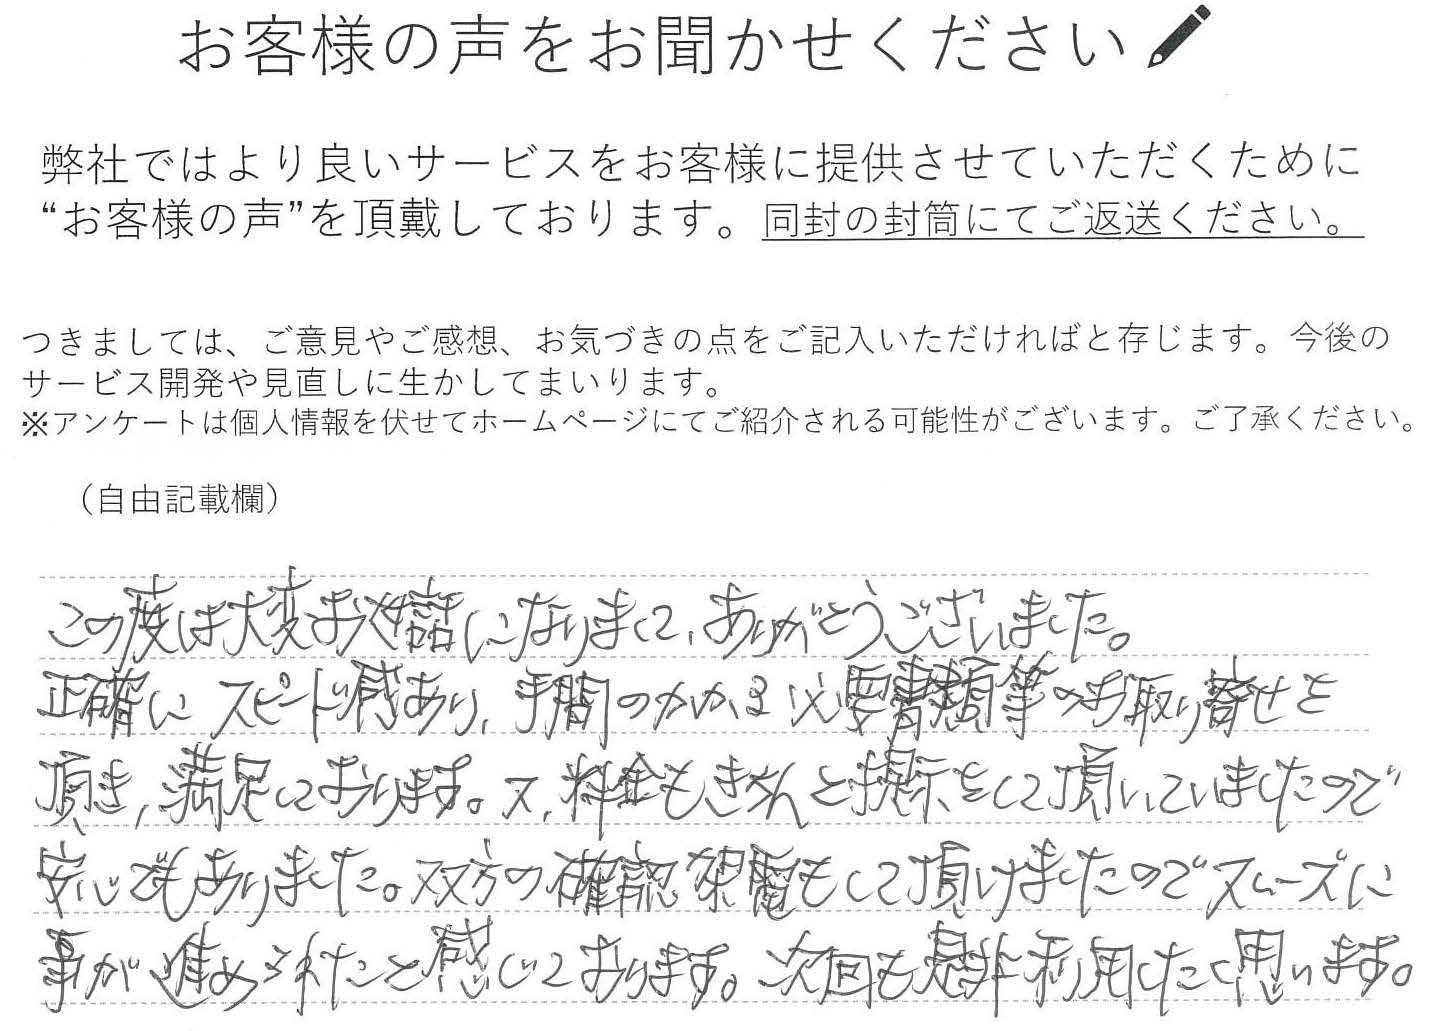 お客様の声をお聞かせください
弊社ではより良いサービスをお客様に提供させていただくために
“お客様の声”を頂戴しております。同封の封筒にてご返送ください。
つきましては、ご意見やご感想、お気づきの点をご記入いただければと存じます。今後の
サービス開発や見直しに生かしてまいります。
※アンケートは個人情報を伏せてホームページにてご紹介される可能性がございます。ご了承ください。
（自由記載欄）
この度は大変お世話になりまして、ありがとうございました。
正確に スピード感あり、手間のかかる必要書類等のお取り寄せを
頂き、満足しております。又、料金もきちんと提示をして頂いていましたので
安心でもありました。双方の確認架電もして頂けましたのでスムーズに
事が進められたこと感じております。次回も是非利用したく思います。